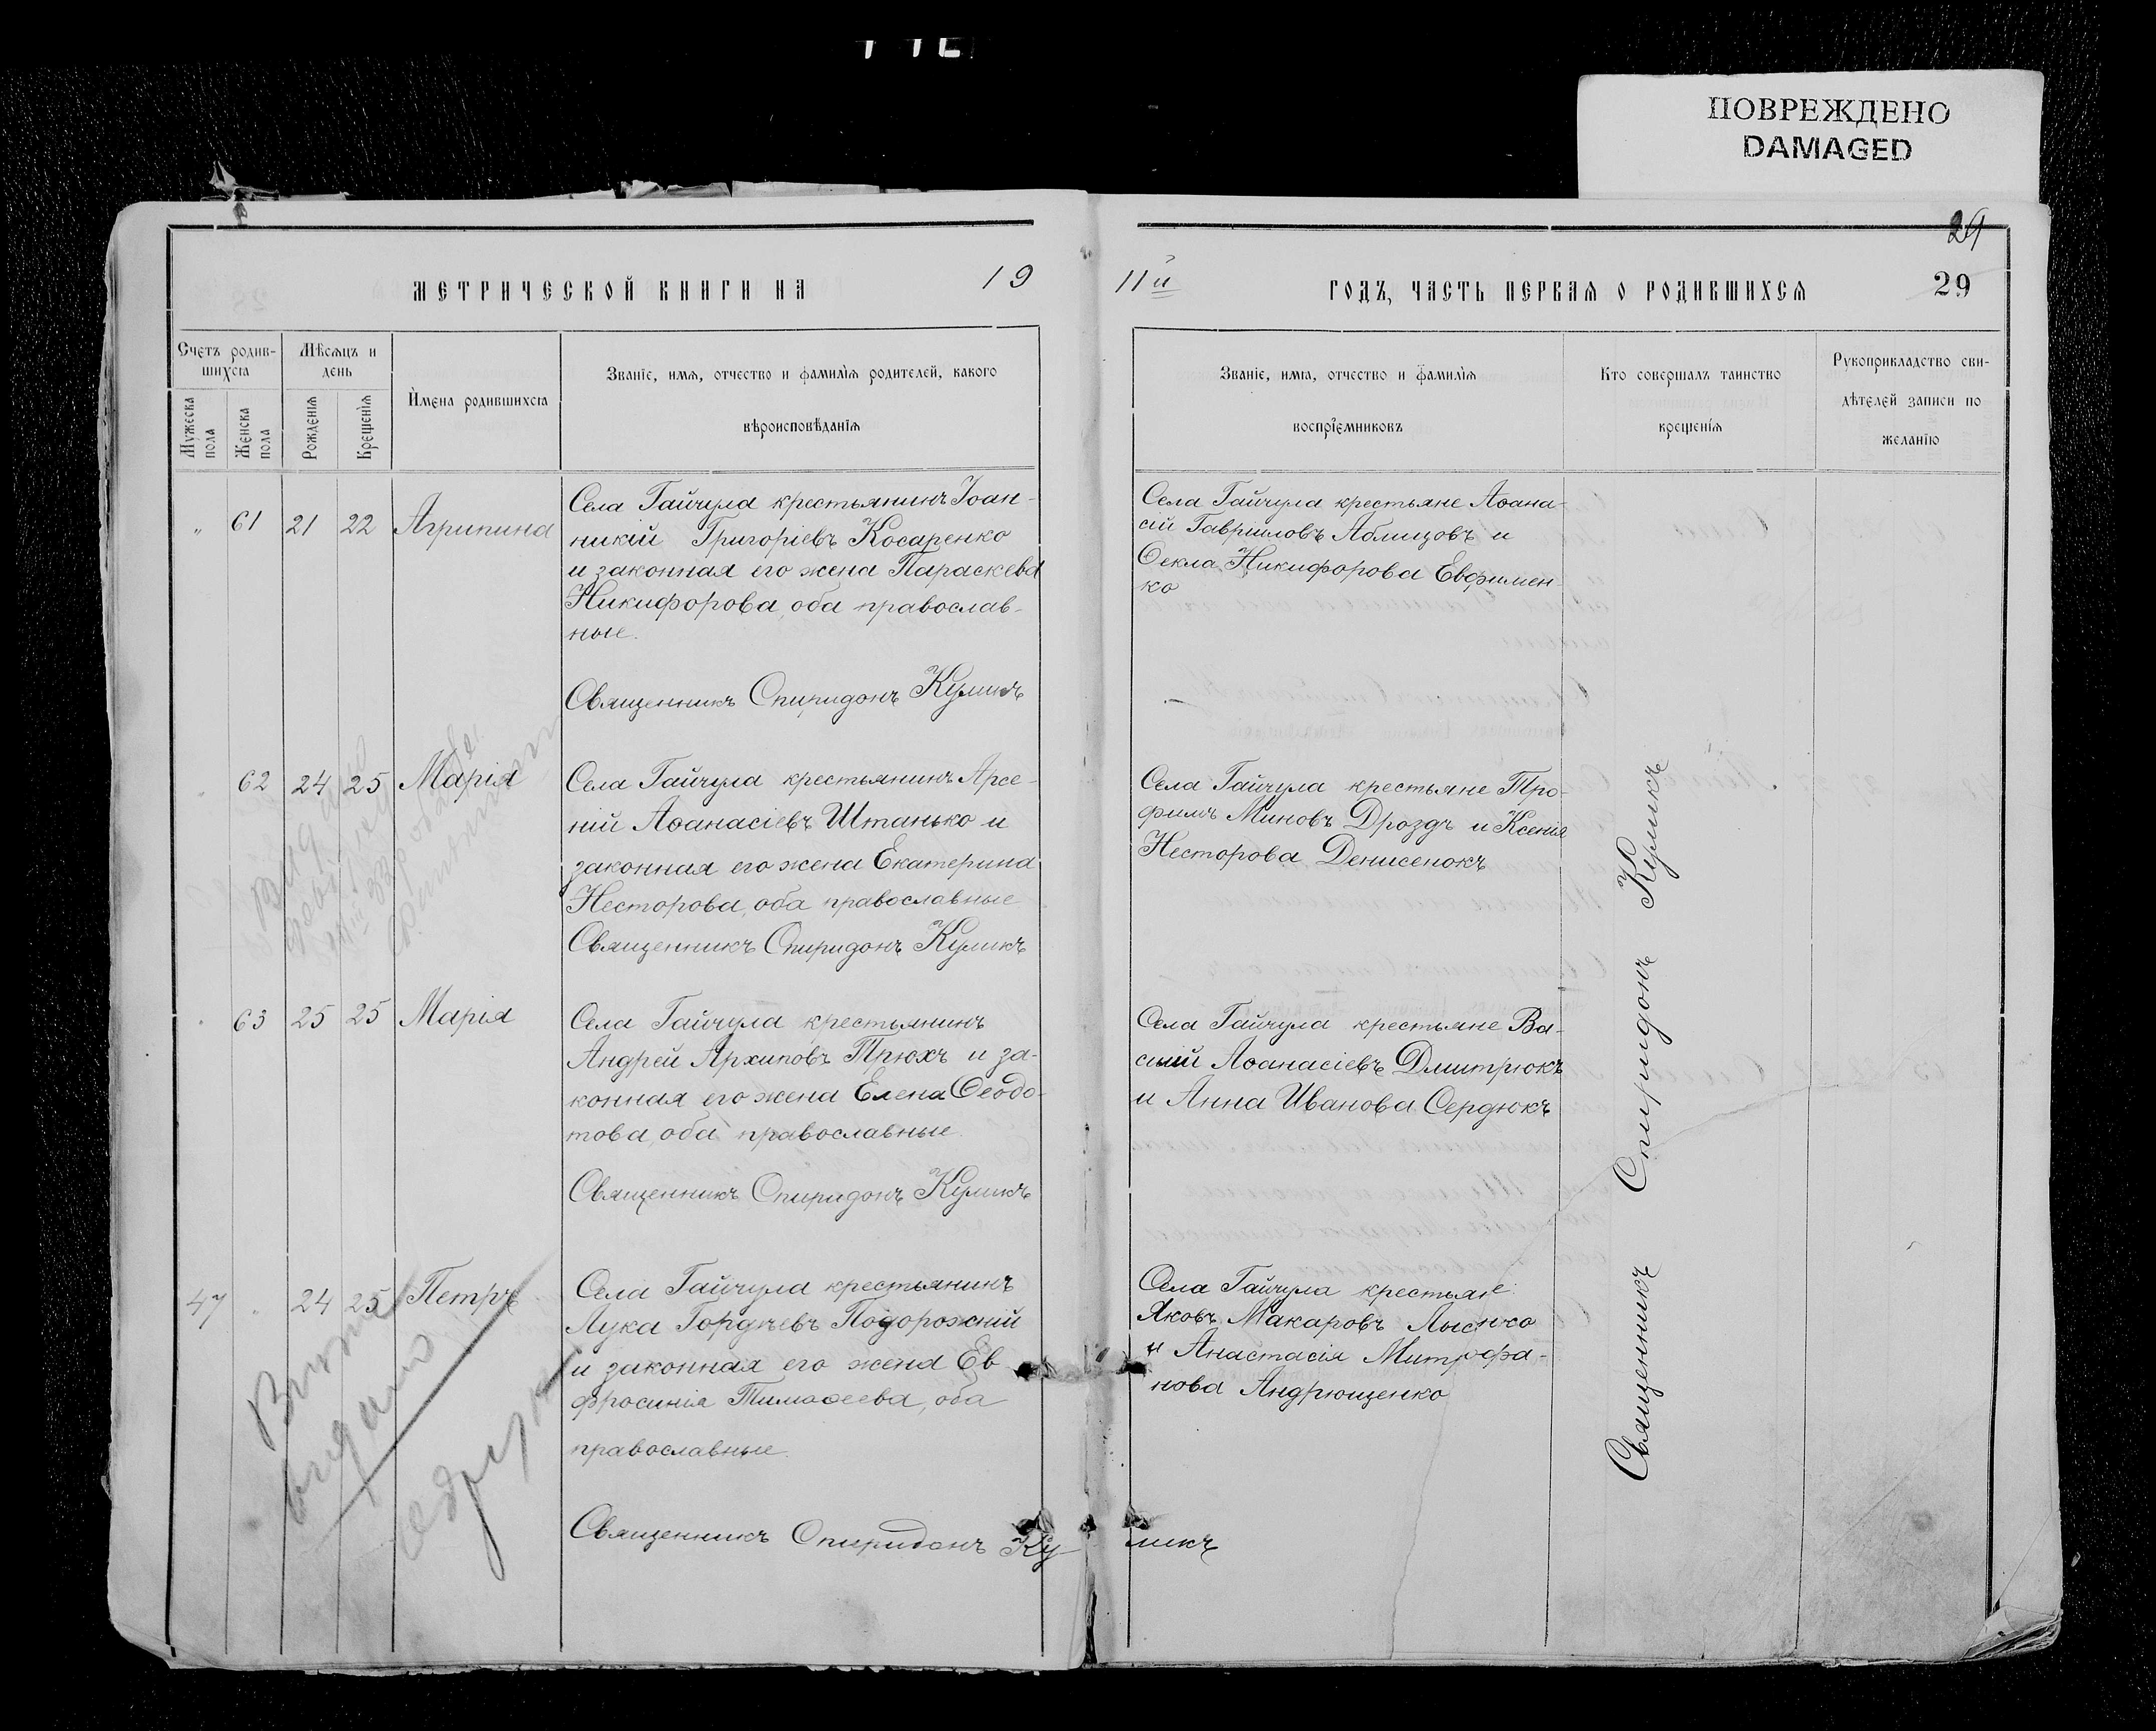 ПОВРЕЖДЕНО
DAMAGED
29
МЕТРИЧЕСКОЙ КНИГИ НА 19
11й ГОДЪ, ЧАСТЬ ПЕРВАЯ О РОДИВШИХСЯ 29
Счетъ родив-
шихся
Мужеска пола
Женска пола
Мѣсяцъ и
день
Рожденія
Крещенія
Имена родившихся
Званіе, имя, отчество и фамилія родителей, какого
вѣроисповѣданія
Званіе, имя, отчество и фамилія
воспріемниковъ
Кто совершалъ таинство
крещенія
Рукоприкладство сви-
дѣтелей записи по
желанію
" 61 21 22 Агрипина
Села Гайчула крестьянинъ Іоан-
никій Григоріевъ Косаренко
и законная его жена Параскева
Никифорова, оба православ-
ные.
Священникъ Спиридонъ Куликъ
Села Гайчула крестьяне Аѳана-
сій Гавриловъ Аблицовъ и
Ѳекла Никифорова Евфимен-
ко
62 24 25 Марія
Села Гайчула крестьянинъ Арсе-
ній Аѳанасіевъ Штанько и
законная его жена Екатерина
Несторова, оба православные
Священникъ Спиридонъ Куликъ
Села Гайчула крестьяне Тро-
фимъ Миновъ Дроздъ и Ксенія
Несторова Денисенокъ
63 25 25 Марія
Села Гайчула крестьянинъ
Андрей Архиповъ Трюхъ и за-
конная его жена Елена Ѳеодо-
това, оба православные
Священникъ Спиридонъ Куликъ
Села Гайчула крестьяне Ва-
силій Аѳанасіевъ Дмитрюкъ
и Анна Иванова Сердюкъ
47 24 25 Петръ
Села Гайчула крестьянинъ
Лука Гордѣевъ Подорожній
и законная его жена Ев-
фросинія Тимоѳеева, оба
православные.
Священникъ Спиридонъ Ку ликъ
Села Гайчула крестьяне
Яковъ Макаровъ Лысенко
и Анастасія Митрофа-
нова Андрющенко
Священникъ Спиридонъ Куликъ
выдано